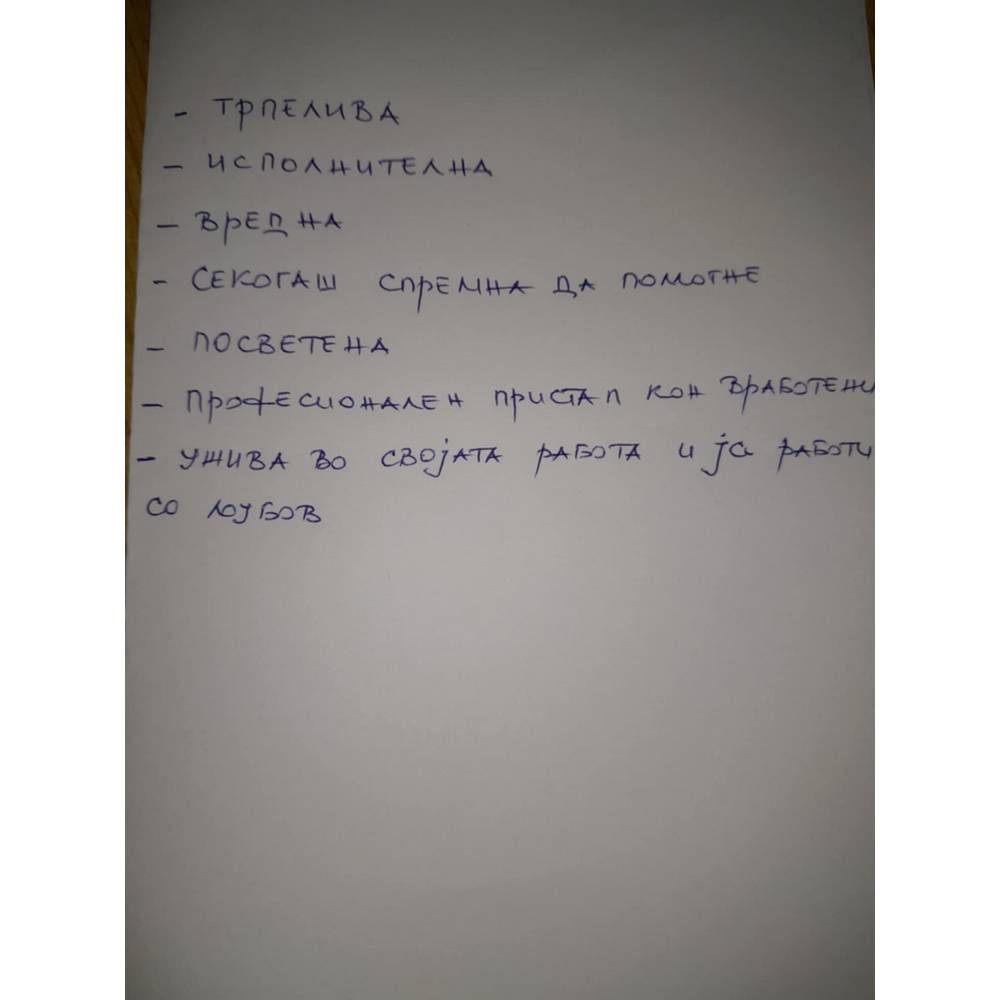 - ТРПЕЛИВА
- ИСПОЛНИТЕЛНА
- ВРЕДНА
- СЕКОГАШ СПРЕМНА ДА ПОМОГНЕ
- ПОСВЕТЕНА
- ПРОФЕСИОНАЛЕН ПРИСТАП КОН ВРАБОТЕНИ
- УЖИВА ВО СВОЈАТА РАБОТА И ЈА РАБОТИ
СО ЛУБОВ